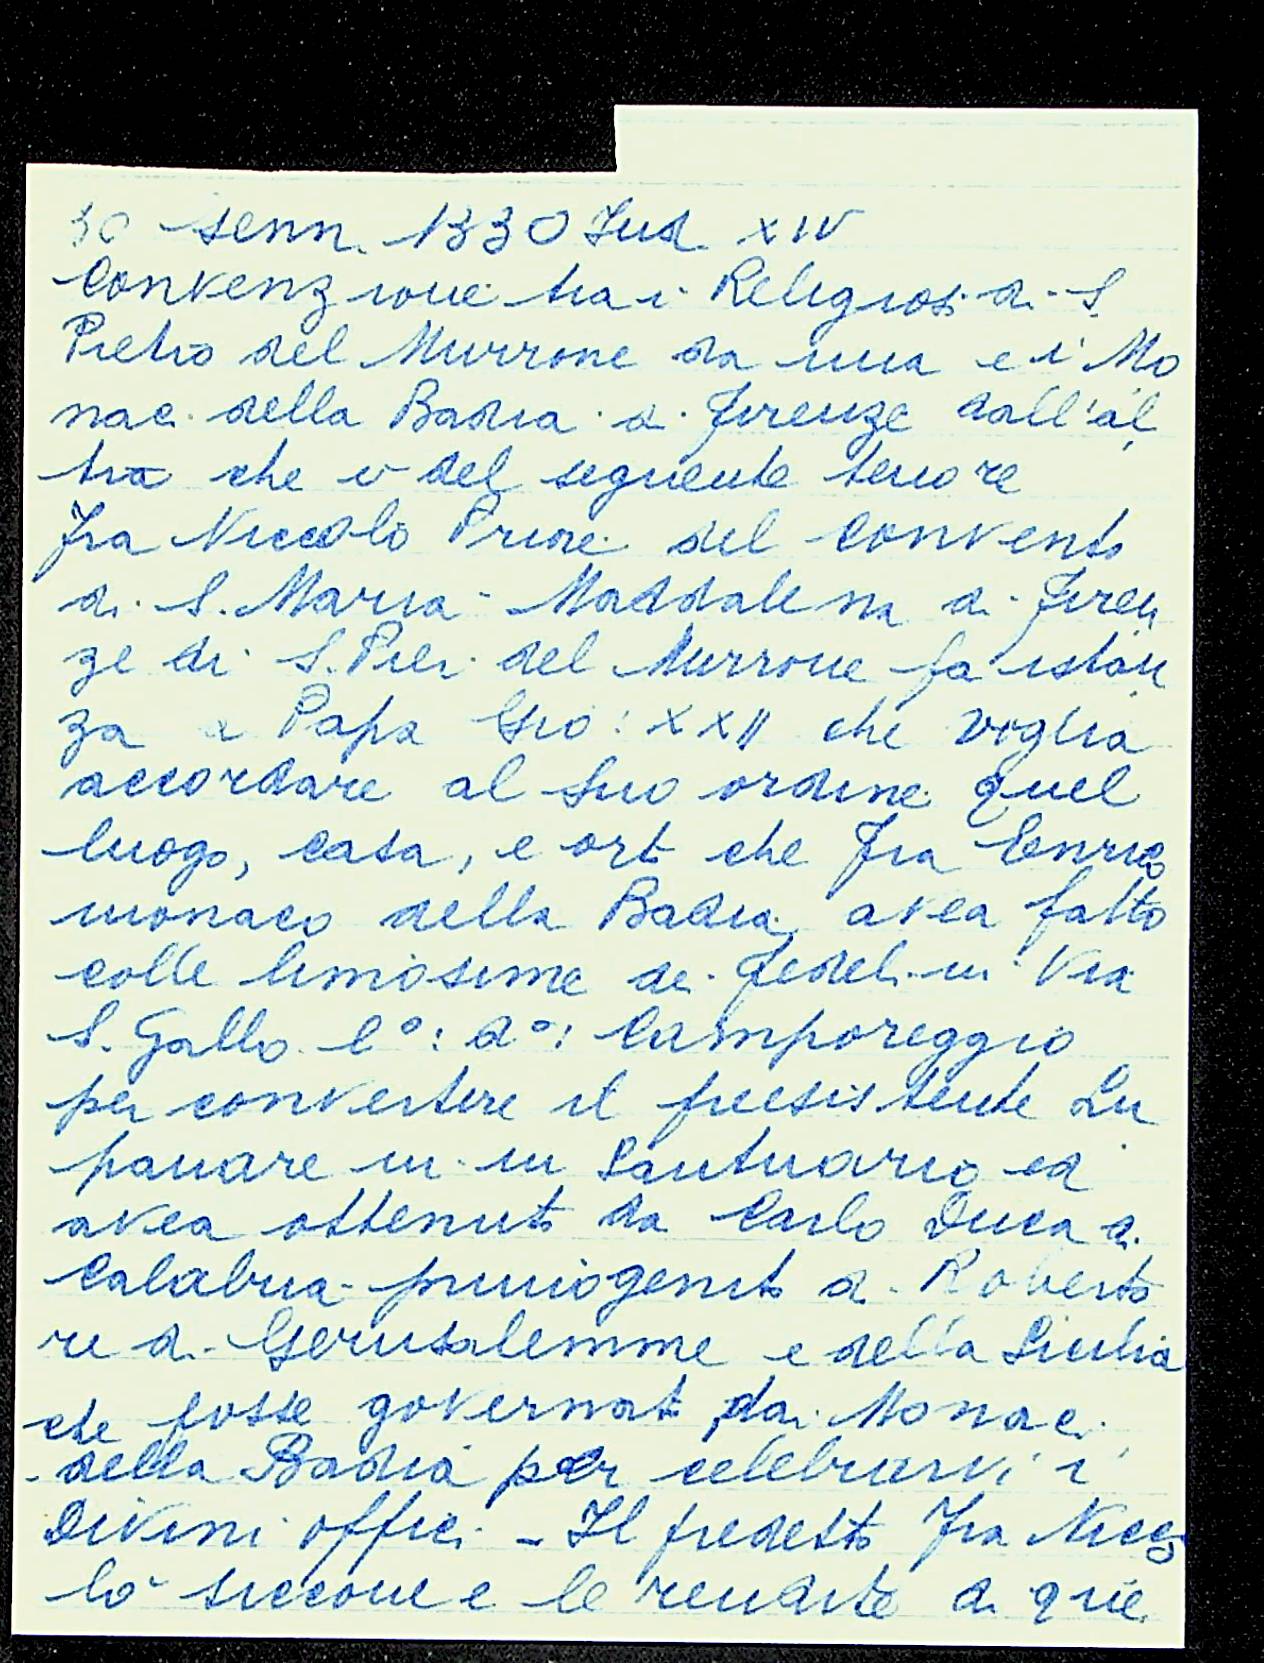 30 Genn. 1330 Ind. XIV
Convenzione tra i Religiosi di S.
Pietro del Murrone da una e i Mo
naci della Badia di Firenze dall'al
tra che è del seguente tenore
Fra Niccolò Priore del Convento
di S. Maria Maddalena di Firen
ze di S. Pier del Murrone fa istan
za a Papa Gio: XXII che voglia
accordare al suo ordine quel
luogo, casa, e orto che Fra Enrico
monaco della Badia, avea fatto
colle limosime dei Fedeli in Via
S. Gallo l°: d°: Camporeggio
per convertire il preesistente Lu
panare in un Santuario ed
avea ottenuto da Carlo Duca di
Calabria primogenito di Roberto
re di Gerusalemme e della Sicilia
che fosse governato dai Monaci
della Badia per celebrarvi i
Divini offici - Il predetto Fra Nicco
lò siccome le rendite di que